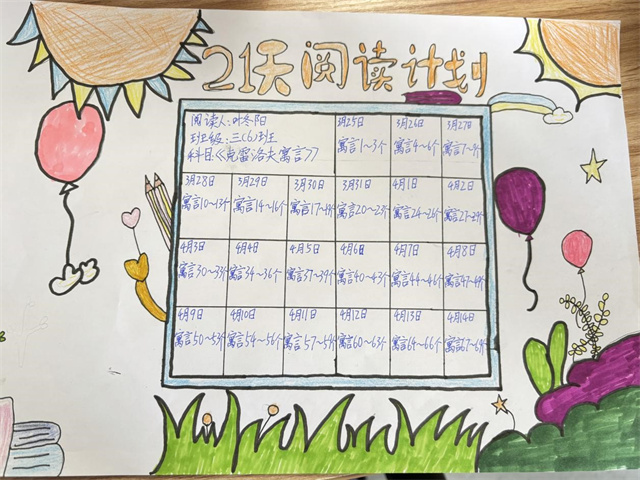 21天阅读计划
阅读人:叶冬阳
班级:三(6)班
科目《克雷洛夫寓言》
3月25日
寓言1~3个
3月26日
寓言4~6个
3月27日
寓言7~9个
3月28日
寓言10~13个
3月29日
寓言14~16个
3月30日
寓言17~19个
3月31日
寓言20~23个
4月1日
寓言24~26个
4月2日
寓言27~29个
4月3日
寓言30~33个
4月4日
寓言34~36个
4月5日
寓言37~39个
4月6日
寓言40~43个
4月7日
寓言44~46个
4月8日
寓言47~49个
4月9日
寓言50~53个
4月10日
寓言54~56个
4月11日
寓言57~59个
4月12日
寓言60~63个
4月13日
寓言64~66个
4月14日